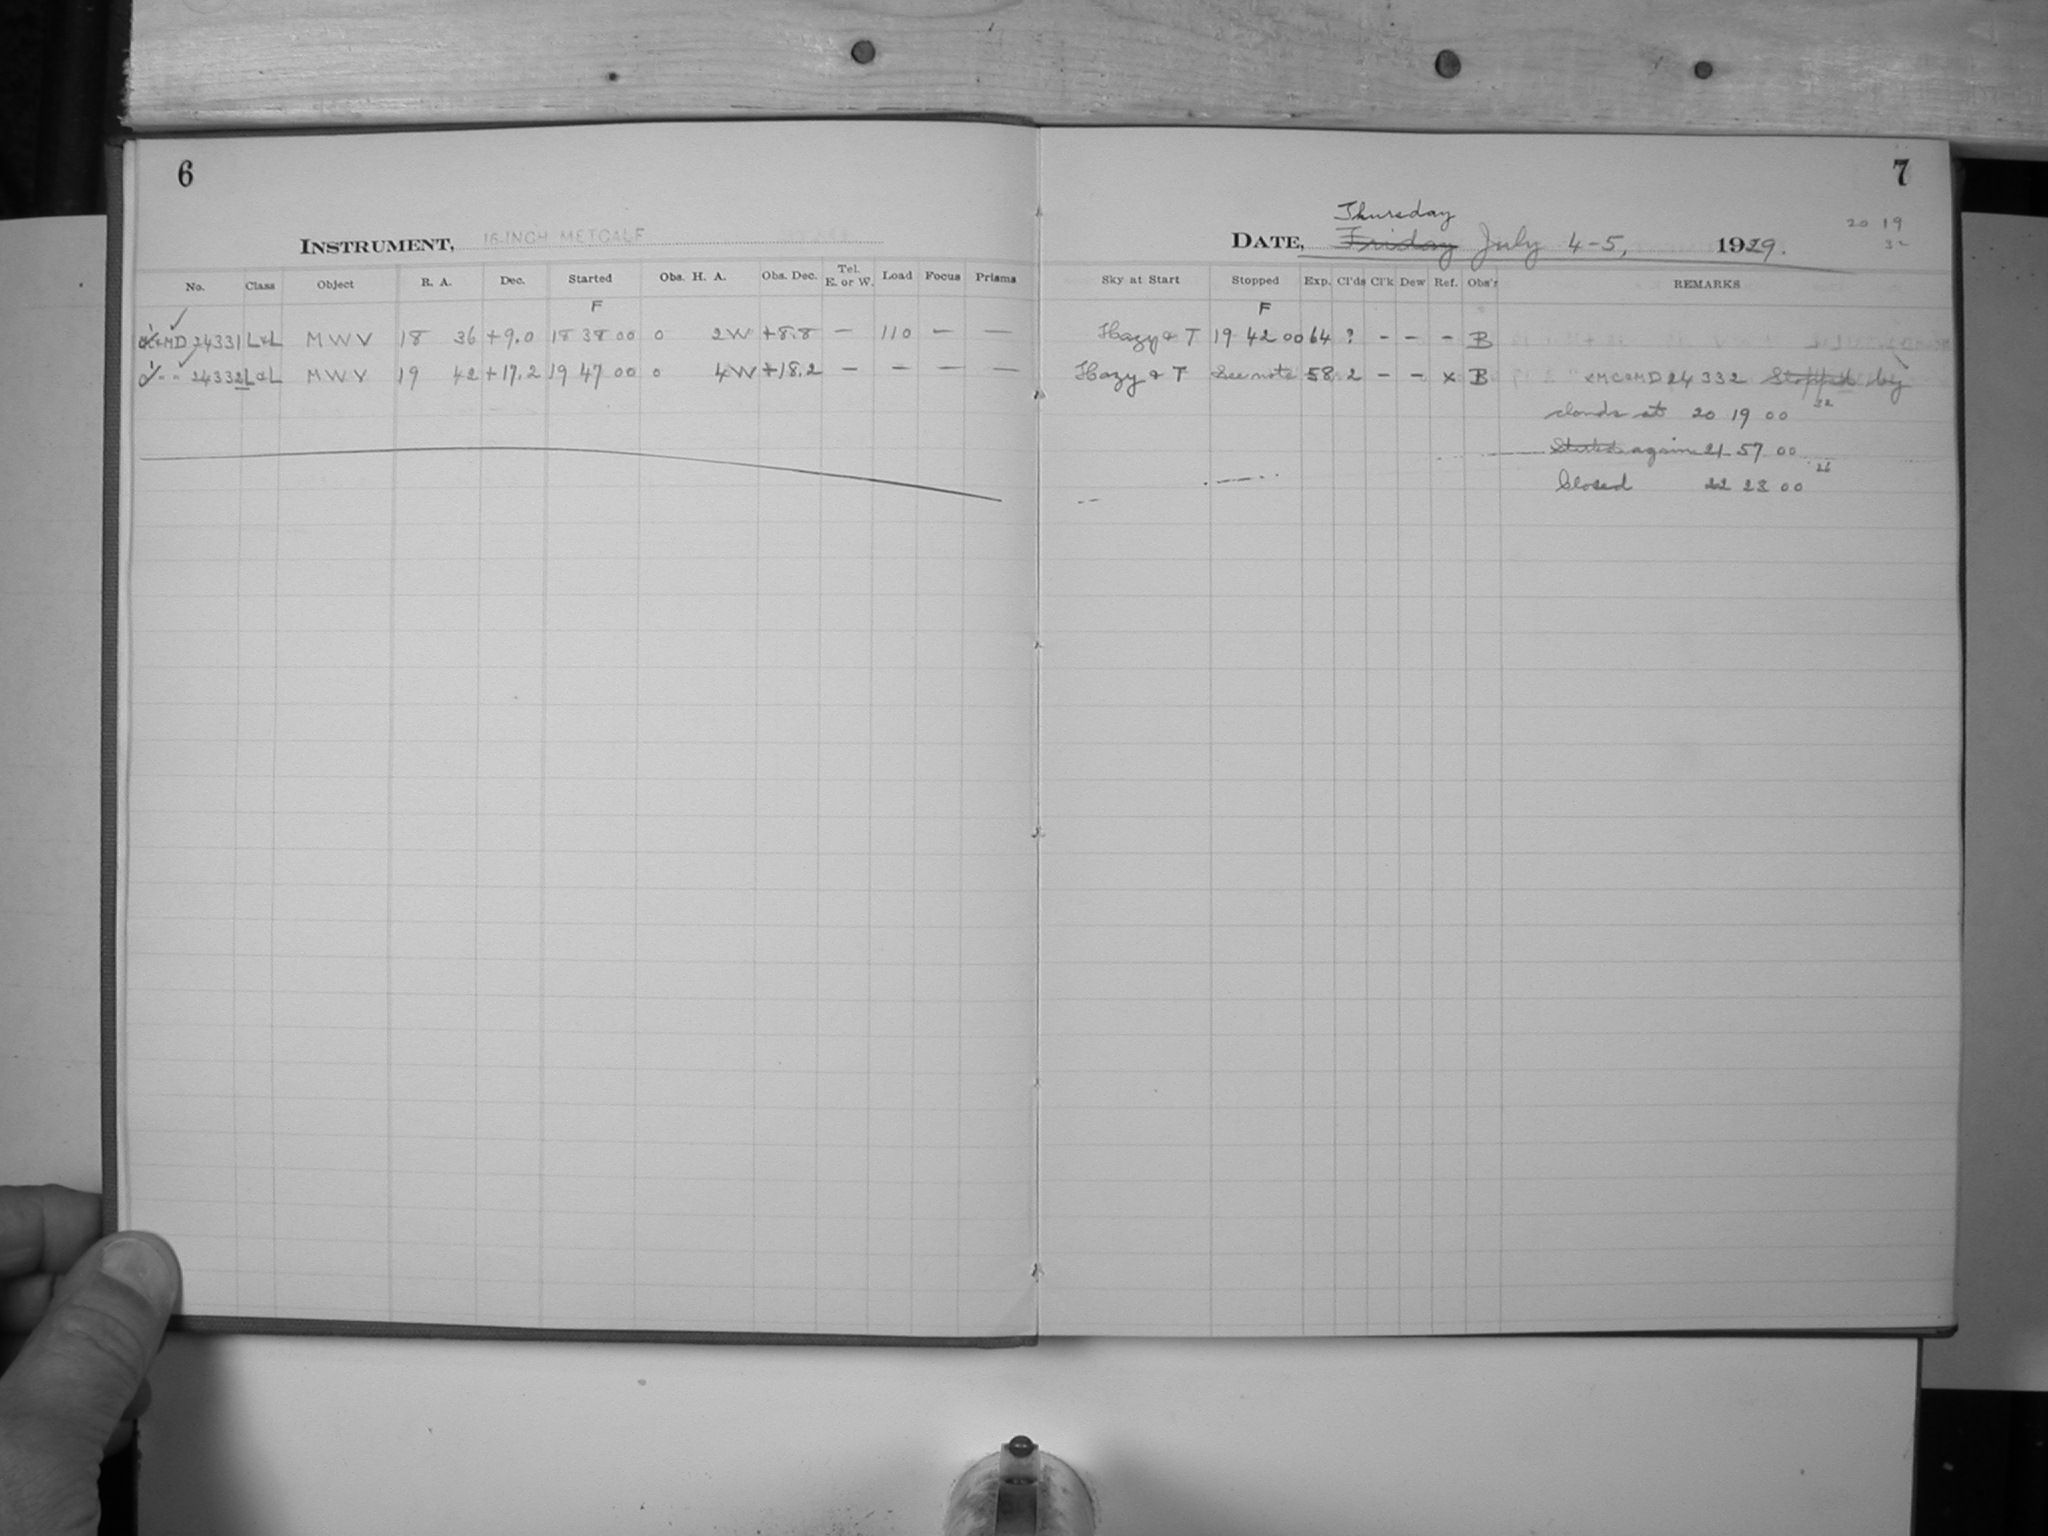 6
INSTRUMENT, 16-INCH METCALF
No. Class Object R. A. Dec. Started Obs. H. A. Obs. Dec. Tel. E. or W. Load Focus Prisms
F
MD 24331 L&L MWV 18 36 +9.0 18 38 00 0 2W +8.8 — 110 — —
" " 24332 L&L MWV 19 42 +17.2 19 47 00 0 4W +18.2 — — — —
7
20 19
32
Thursday
DATE, Friday July 4-5, 1929.
Sky at Start Stopped Exp. Cl'ds Cl'k Dew Ref. Obs'r REMARKS
F
Hazy & T 19 42 00 64 ? - - - B
Hazy & T See note 58 2 - - x B xMC&MD 24 332 Stopped by
clouds at 20 19 00 32
Started again 21 57 00
Closed 22 23 00 26